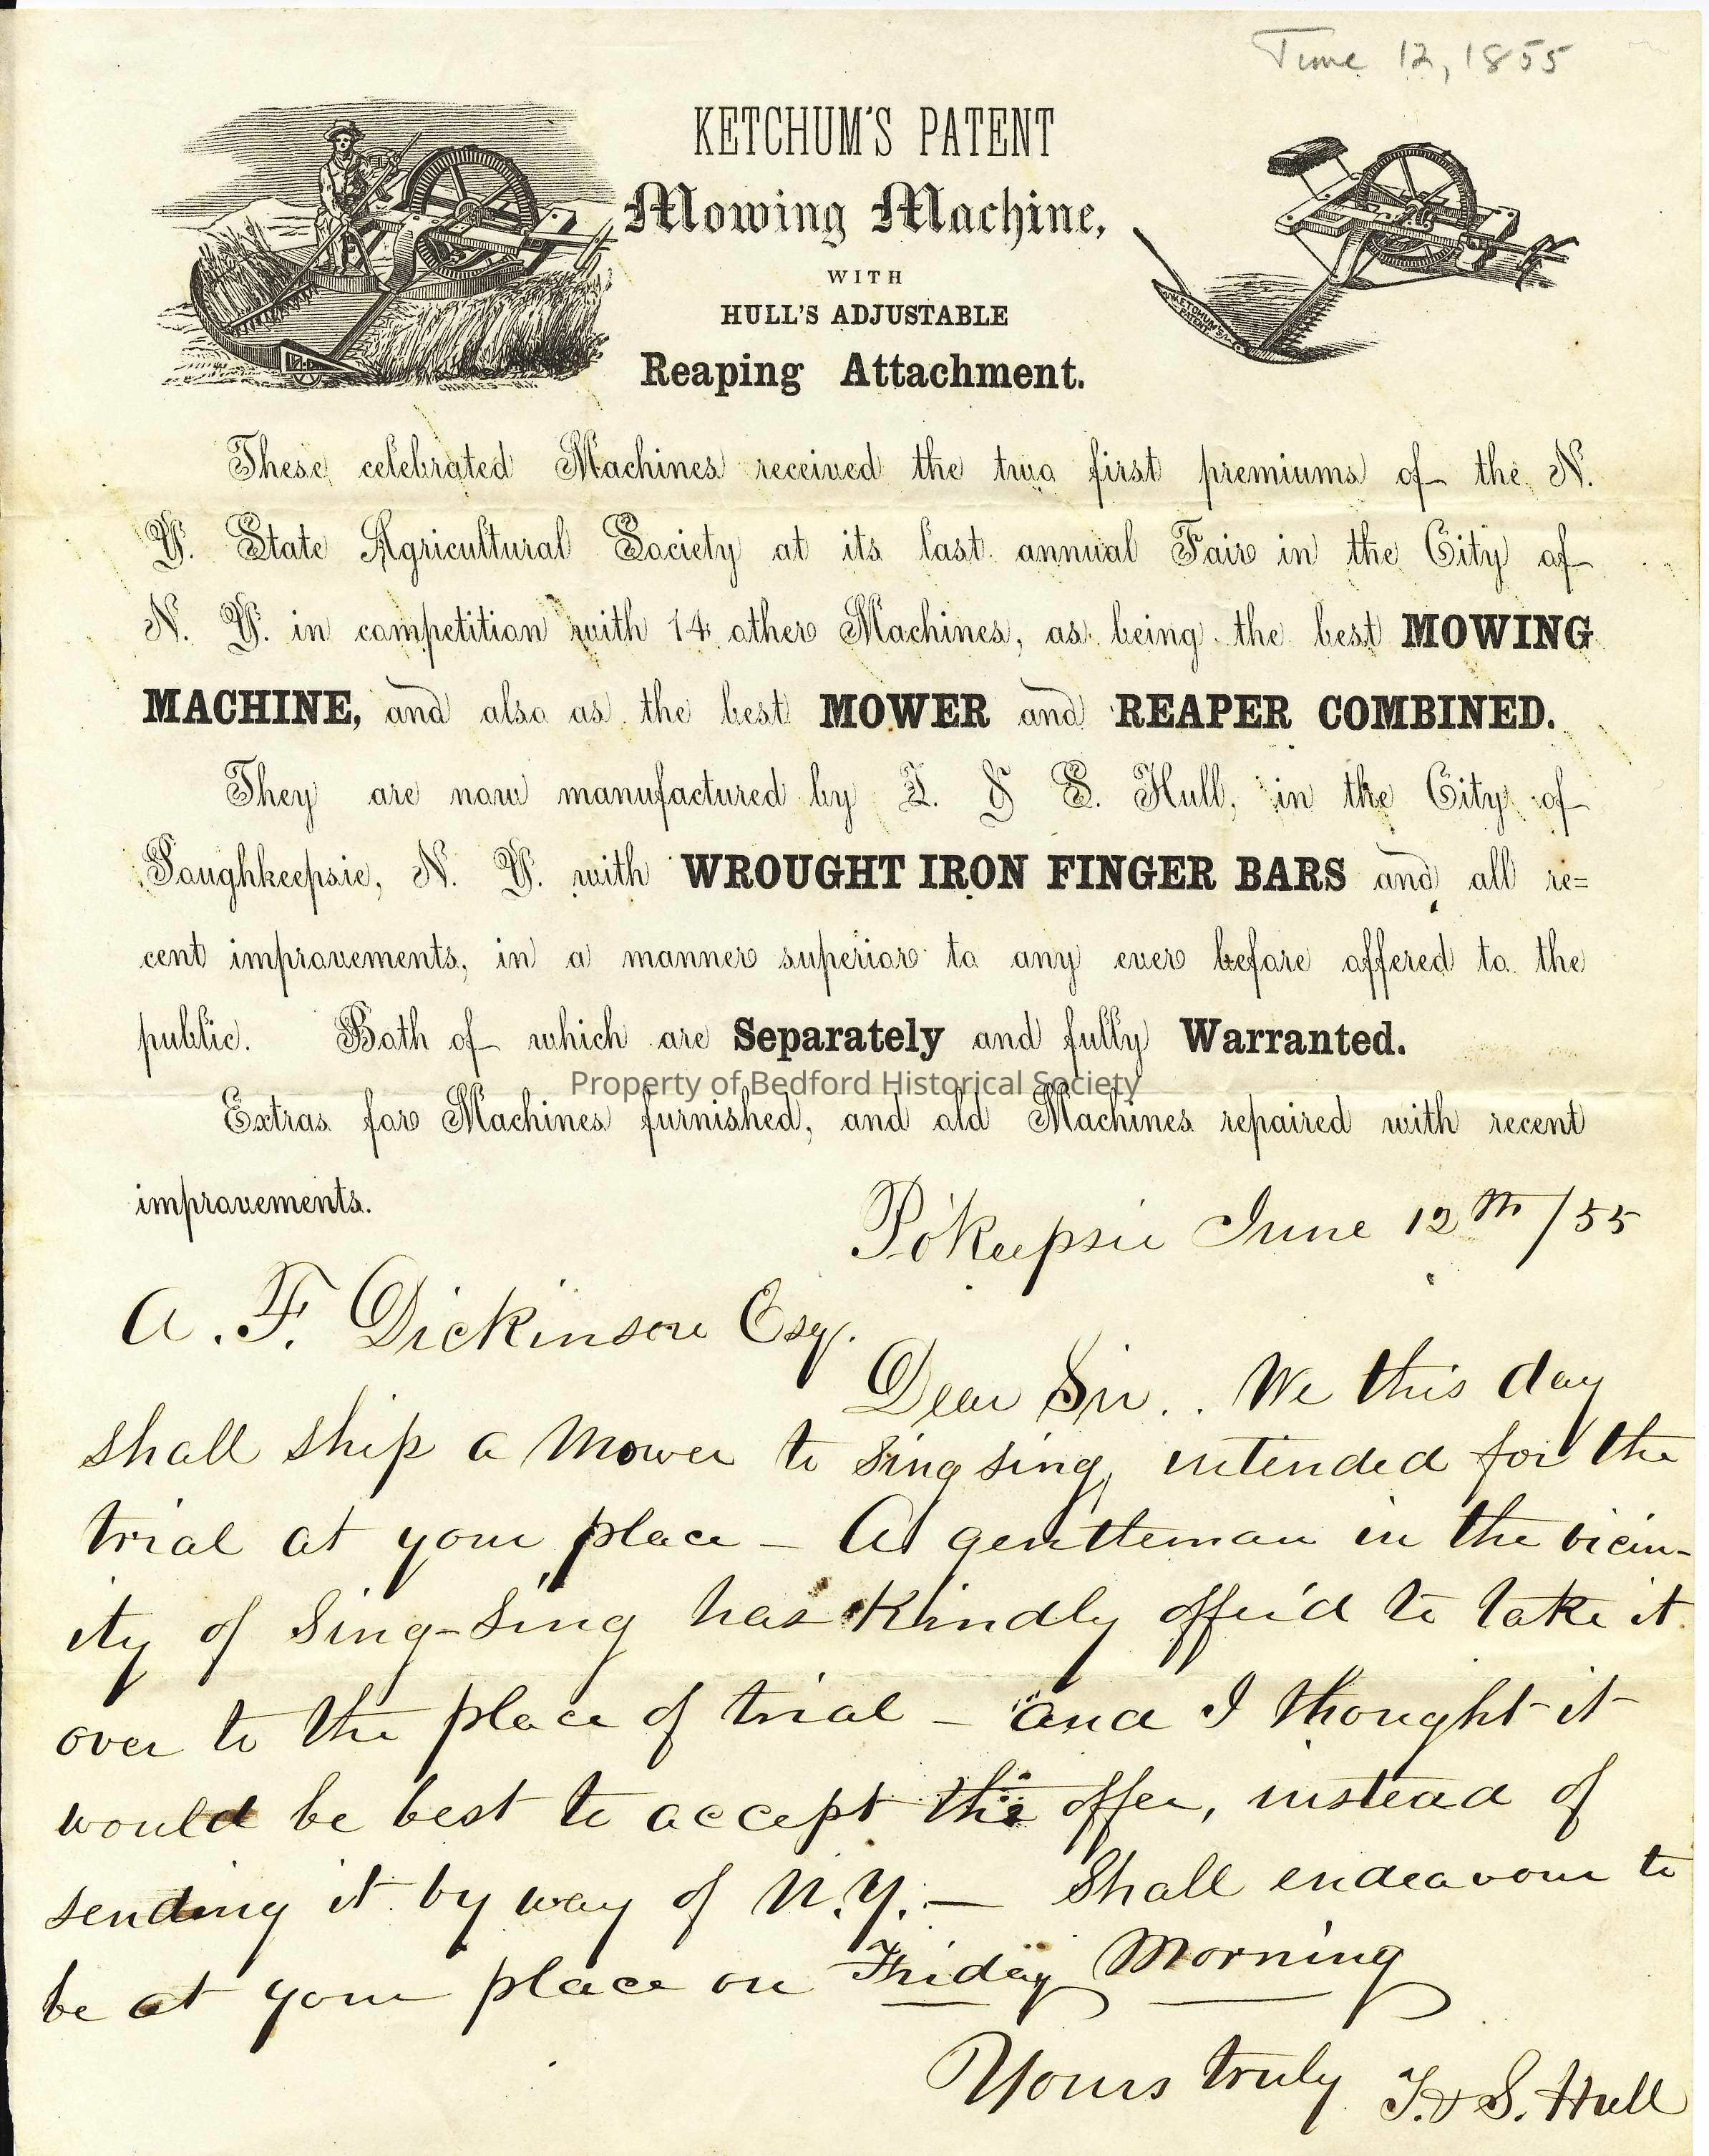 June 12, 1855
KETCHUM'S PATENT
Mowing Machine,
WITH
HULL'S ADJUSTABLE
Reaping Attachment.
KETCHUM'S
PATENT
CHARLES. N.Y.
These celebrated Machines received the two first premiums of the N.
Y. State Agricultural Society at its last annual Fair in the City of
N. Y. in competition with 14 other Machines, as being the best MOWING
MACHINE, and also as the best MOWER and REAPER COMBINED.
They are now manufactured by I. & S. Hull, in the City of
Poughkeepsie, N. Y. with WROUGHT IRON FINGER BARS and all re=
cent improvements, in a manner superior to any ever before offered to the
public. Both of which are Separately and fully Warranted.
Property of Bedford Historical Society
Extras for Machines furnished, and old Machines repaired with recent
improvements.
Pokeepsie June 12th /55
A. F. Dickinson Esq.
Dear Sir.. We this day
shall ship a Mower to Singsing, intended for the
trial at your place - A gentleman in the vicin-
ity of Sing-Sing has kindly offer'd to take it
over to the place of trial - and I thought it
would be best to accept the offer, instead of
sending it by way of N.Y. - Shall endeavour to
be at your place on Friday Morning
Yours truly I. & S. Hull